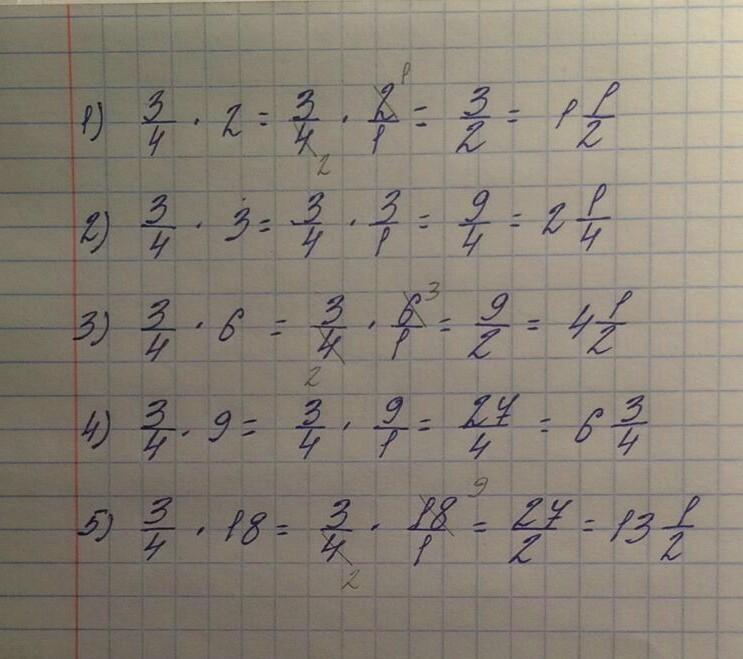 1) 3/4 · 2 = 3/4 2 · 2/1 1 = 3/2 = 1 1/2
2) 3/4 · 3 = 3/4 · 3/1 = 9/4 = 2 1/4
3) 3/4 · 6 = 3/4 2 · 6/1 3 = 9/2 = 4 1/2
4) 3/4 · 9 = 3/4 · 9/1 = 27/4 = 6 3/4
5) 3/4 · 18 = 3/4 2 · 18/1 9 = 27/2 = 13 1/2